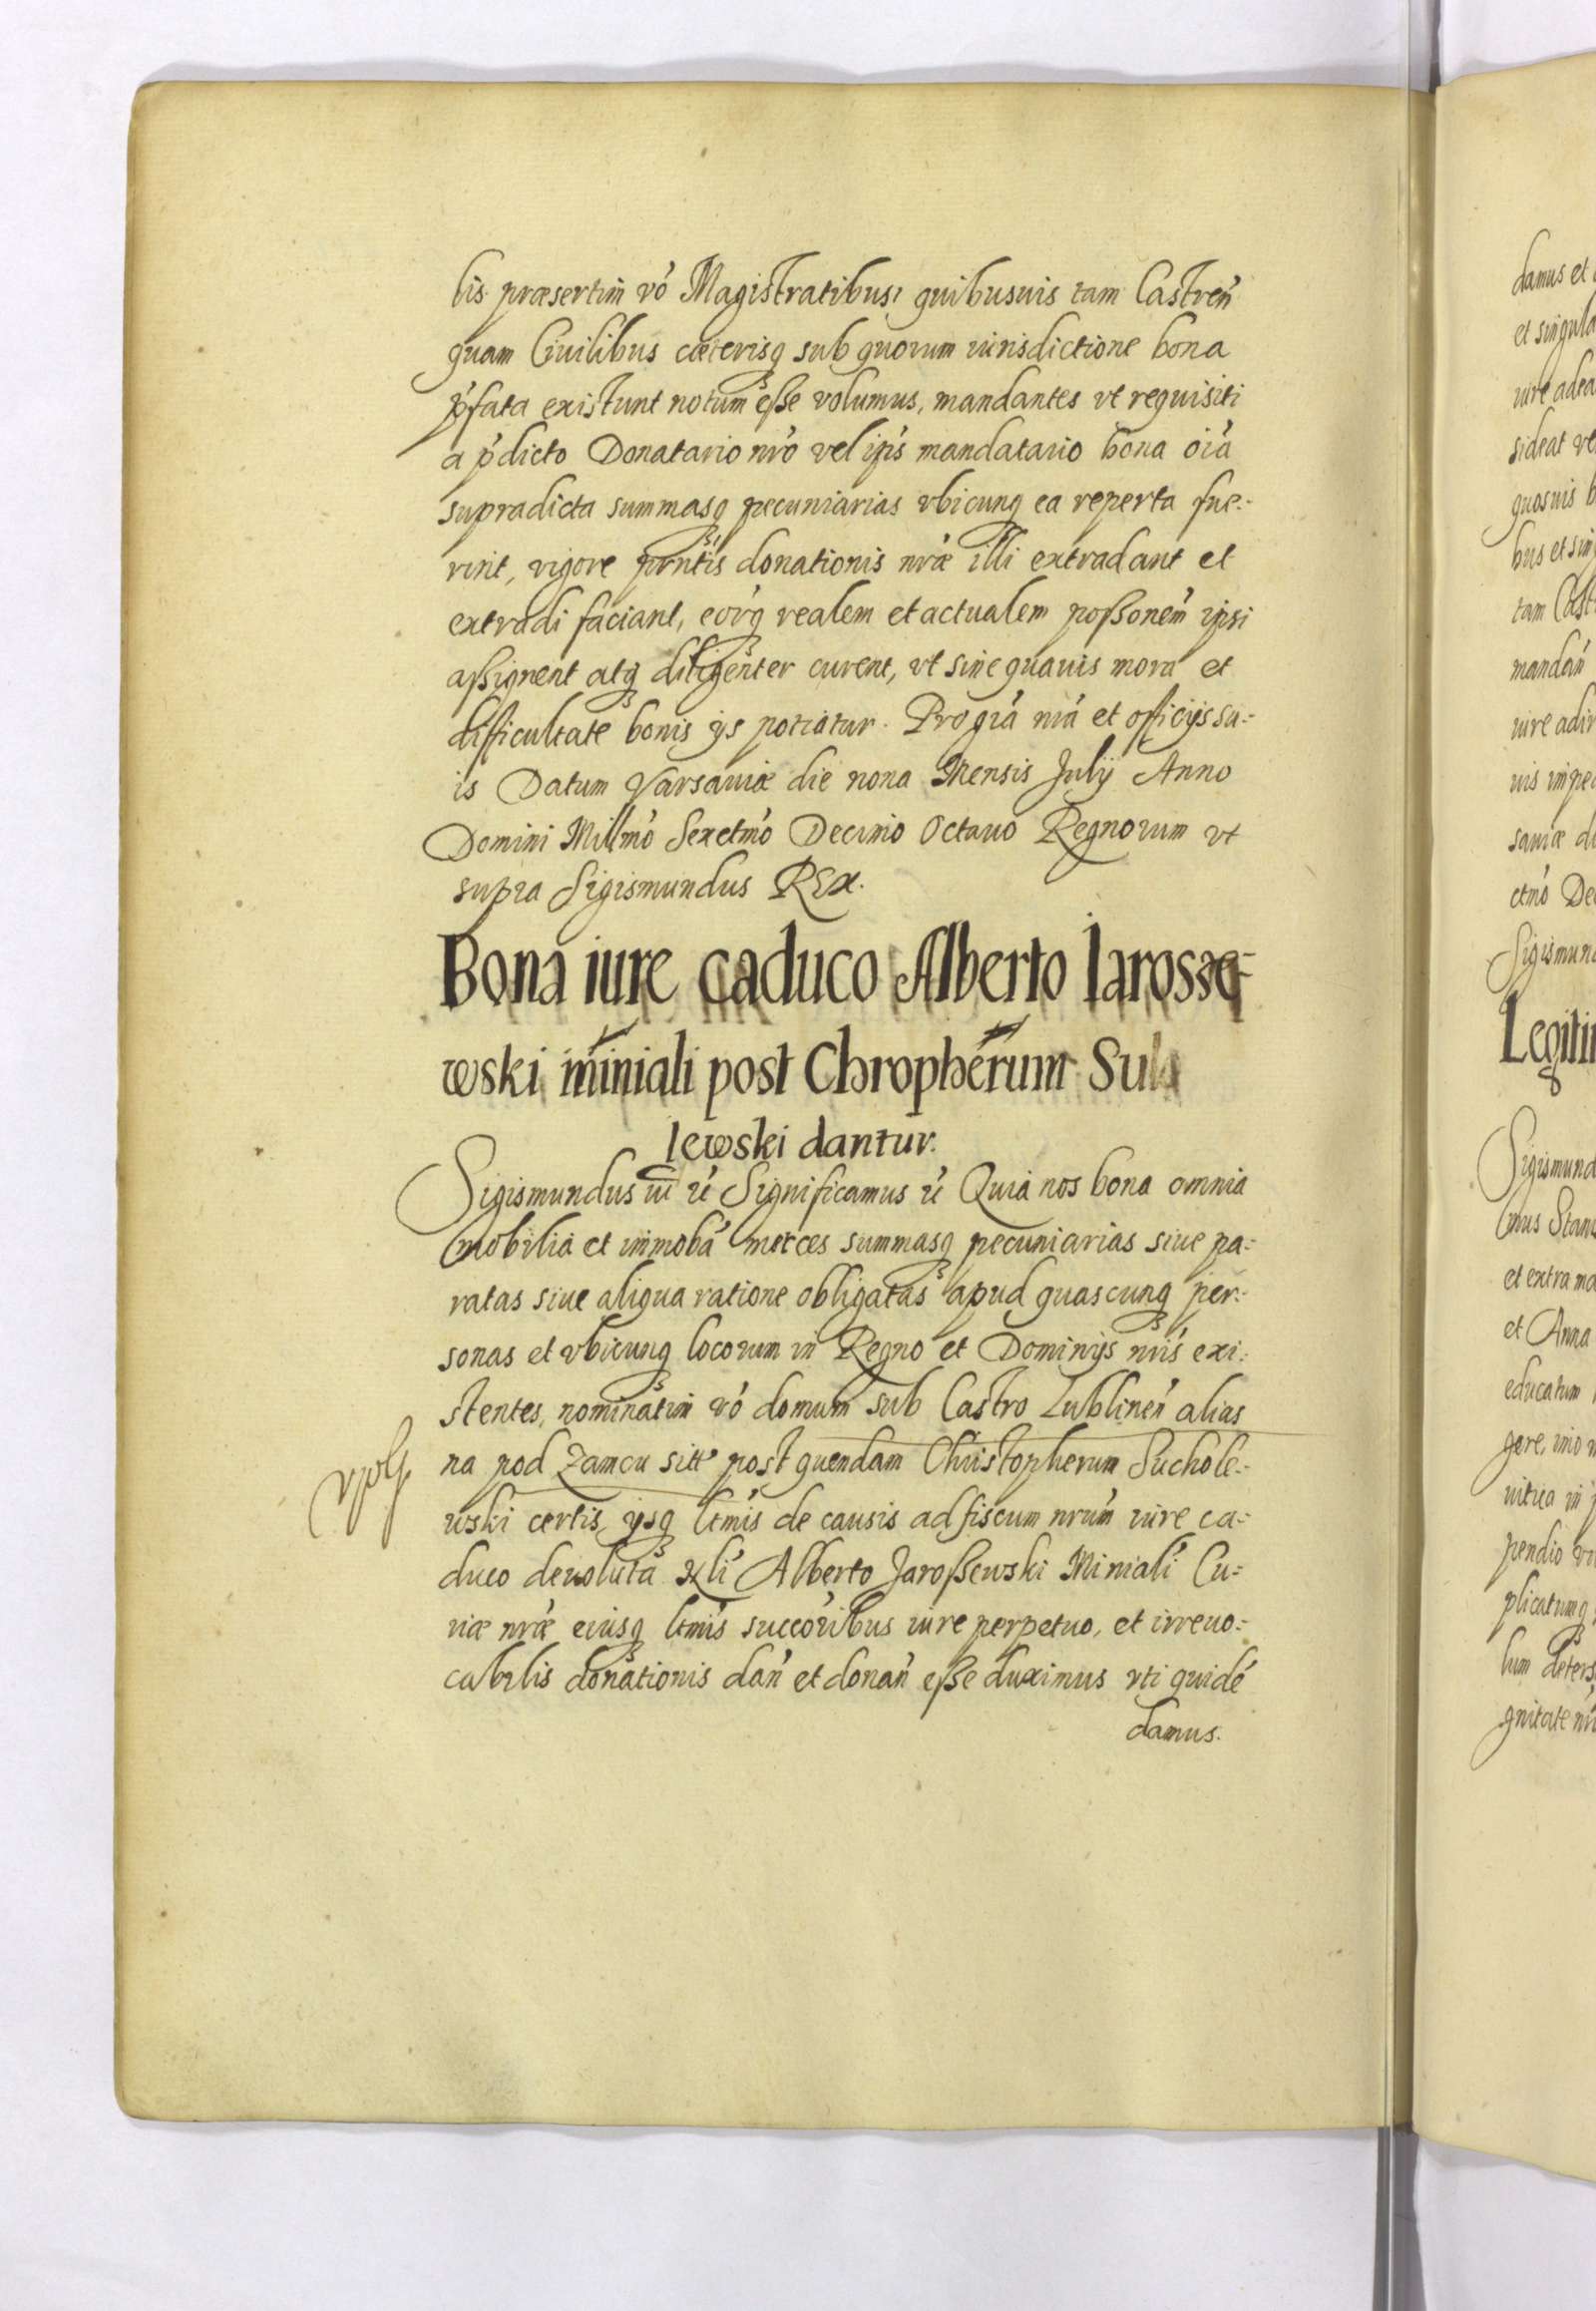 lis præsertim vó Magistratibus, quibusuis tam Castreń
quam Ciuilibus cæterisq sub quorum iurisdictione bona
p̃fata existunt notum eße volumus, mandantes vt requisiti
a p̃dicto Donatario nr̃o vel ip̃is mandatario bona oı̃a
supradicta summasq pecuniarias vbicunq ea reperta fue:
rint, vigore pr̃ntis donationis nr̃æ illi extradant et
extradi faciant, eor̃q realem et actualem poßonem̃ ipsi
aßignent atq diligenter curent, vt sine quauis mora et
difficultate bonis ijs potiatur. Pro gr̃a nr̃a et officijs su:
is Datum Varsauiæ die nona Mensis Julij Anno
Domini Millm̃o Sexctm̃o Decimo Octauo Regnorum vt
supra Sigismundus REX.
Bona iure caduco Alberto Iarossę=
wski miniali post Chropherum Su
lewski dantur.
Sigismundus iii r̃é Significamus r̃é Quia nos bona omnia
mobilia et immobã merces summasq pecuniarias siue pa:
ratas siue aliqua ratione obligatas apud quascunq per:
sonas et vbicunq locorum in Regno et Dominijs nr̃is exi:
stentes, nominatim vó domum sub Castro Lublineń alias
na pod Zamcu sitt post quendam Christopherum Suchole:
wski certis, ijsq ltm̃is de causis ad fiscum nrum̃ iure ca:
duco deuoluta Nli Alberto Jaroßewski Miniali Cu:
riæ nr̃æ eiusq ltm̃is succorı̃bus iure perpetuo, et irreuo:
cabilis donationis dań et donań eße duximus vti quidé
damus.
damus et
et singula
iure adea
sideat ve
quosuis b
bus et sin
tam Cast
mandań
iure adir
uis impe
sauiæ di
ctm̃o De
Sigismun
Legiti
Sigismund
mus Stan
et extra ma
et Anna
educatum
gere, imo
uitia in p
pendio
plicatumq
lum deters
gnitate nr